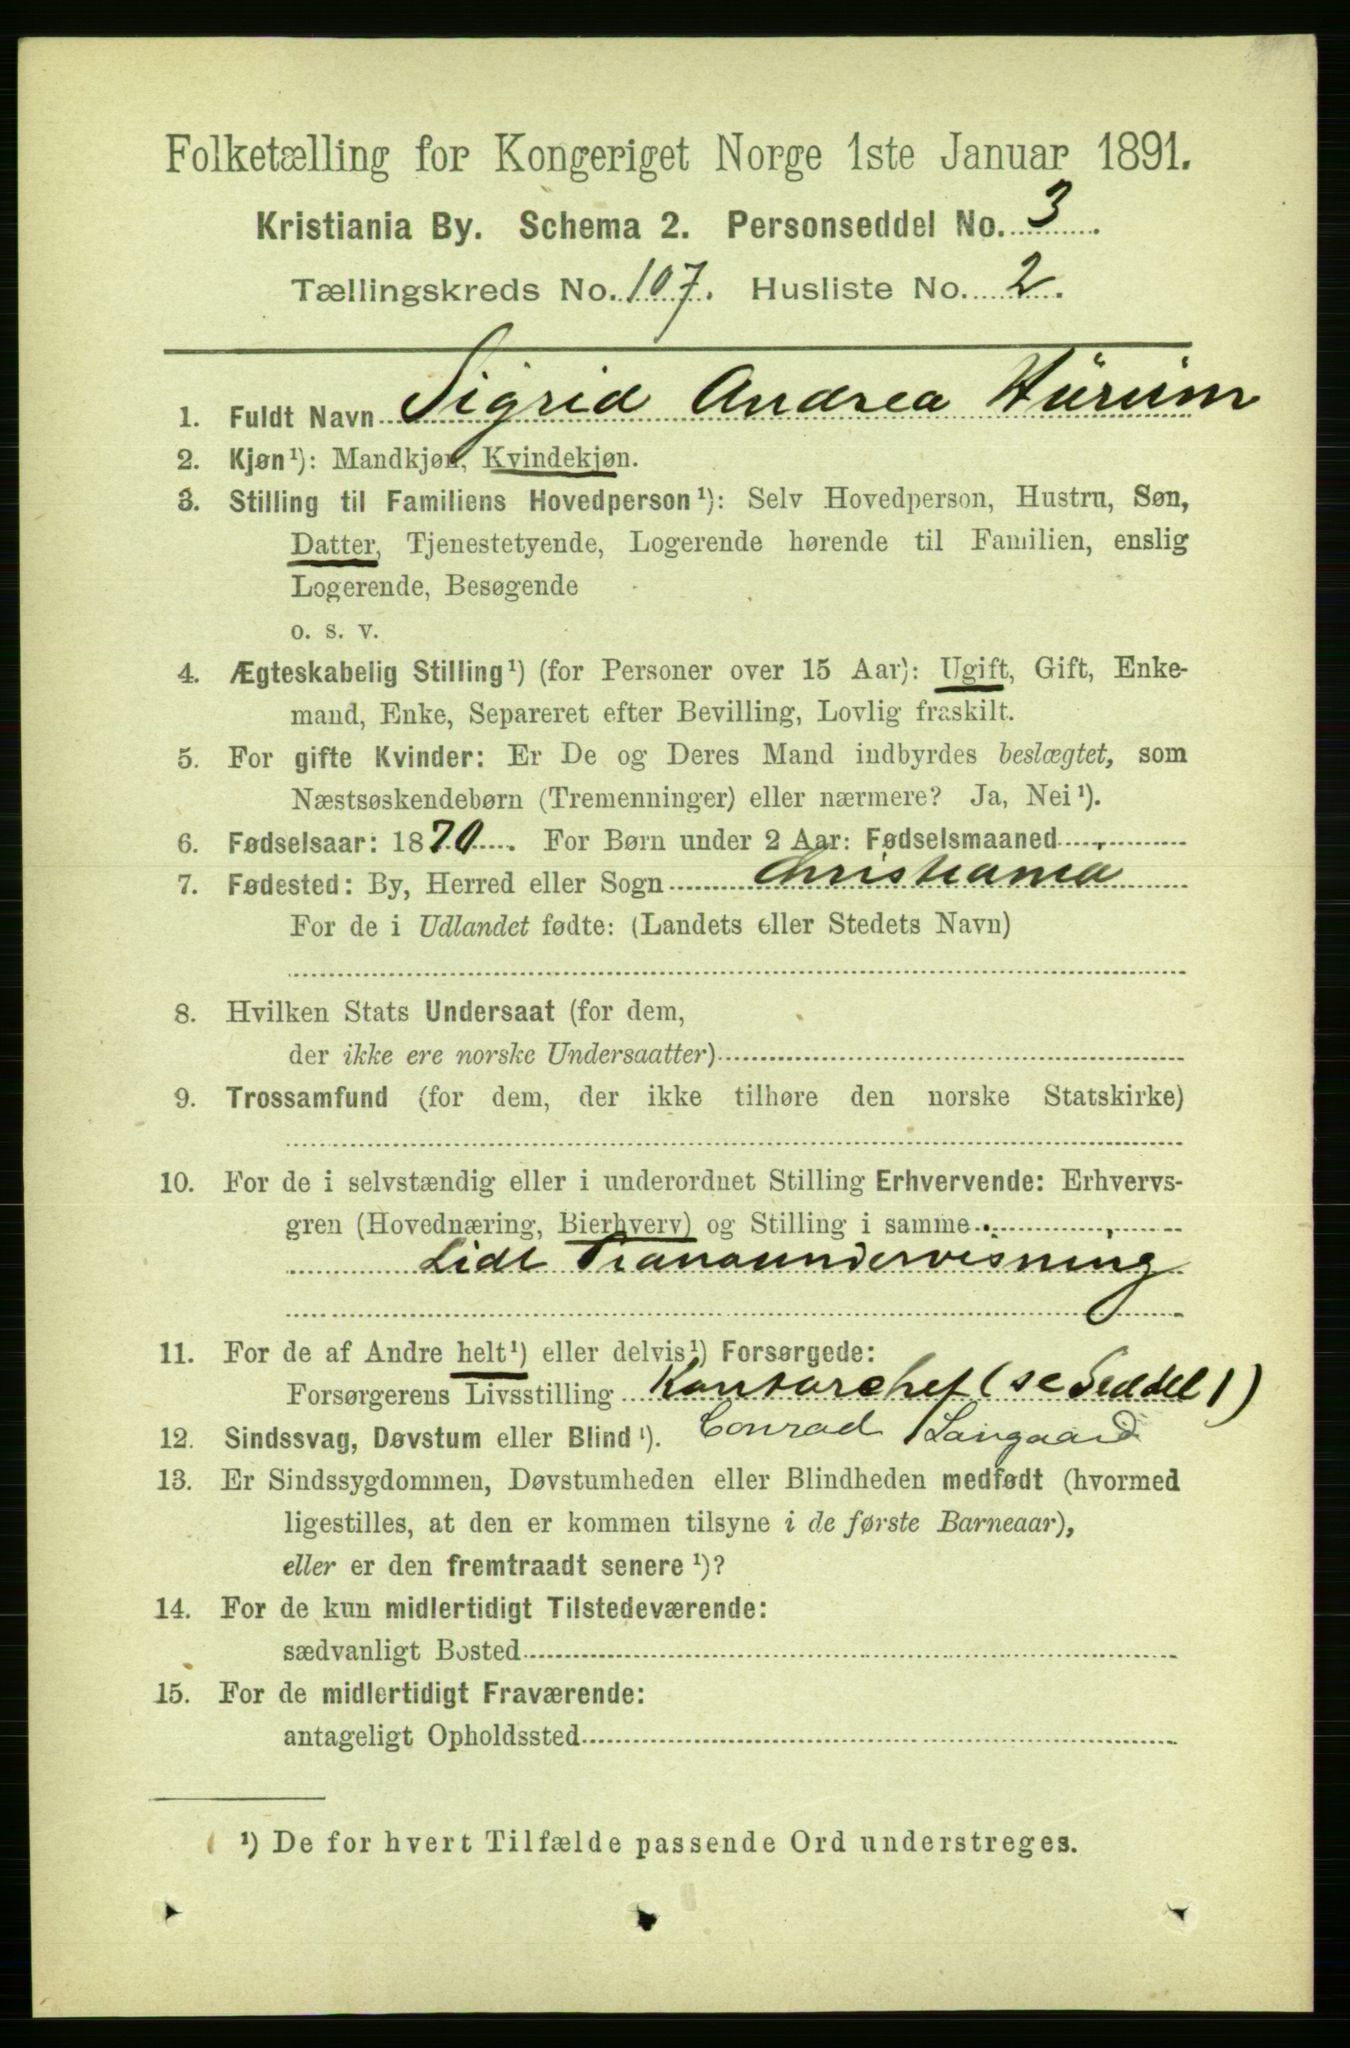 Folketælling for Kongeriget Norge 1ste Januar 1891.
Kristiania By. Schema 2. Personseddel No. 3.
Tællingskreds No. 107. Husliste No. 2.
1. Fuldt Navn Sigrid Andrea Hürüm
2. Kjøn¹): Mandkjøn, Kvindekjøn.
3. Stilling til Familiens Hovedperson¹): Selv Hovedperson, Hustru, Søn,
Datter, Tjenestetyende, Logerende hørende til Familien, enslig
Logerende, Besøgende
o. s. v.
4. Ægteskabelig Stilling¹) (for Personer over 15 Aar): Ugift, Gift, Enke-
mand, Enke, Separeret efter Bevilling, Lovlig fraskilt.
5. For gifte Kvinder: Er De og Deres Mand indbyrdes beslægtet, som
Næstsøskendebørn (Tremenninger) eller nærmere? Ja, Nei¹).
6. Fødselsaar: 1870. For Børn under 2 Aar: Fødselsmaaned
7. Fødested: By, Herred eller Sogn Christiania
For de i Udlandet fødte: (Landets eller Stedets Navn)
8. Hvilken Stats Undersaat (for dem,
der ikke ere norske Undersaatter)
9. Trossamfund (for dem, der ikke tilhøre den norske Statskirke)
10. For de i selvstændig eller i underordnet Stilling Erhvervende: Erhvervs-
gren (Hovednæring, Bierhverv) og Stilling i samme
Lidt Pianoundervisning
11. For de af Andre helt¹) eller delvis¹) Forsørgede:
Forsørgerens Livsstilling Kontorchef (se Seddel 1)
12. Sindssvag, Døvstum eller Blind¹). Conrad Langaard
13. Er Sindssygdommen, Døvstumheden eller Blindheden medfødt (hvormed
ligestilles, at den er kommen tilsyne i de første Barneaar),
eller er den fremtraadt senere¹)?
14. For de kun midlertidigt Tilstedeværende:
sædvanligt Bosted
15. For de midlertidigt Fraværende:
antageligt Opholdssted
¹) De for hvert Tilfælde passende Ord understreges.